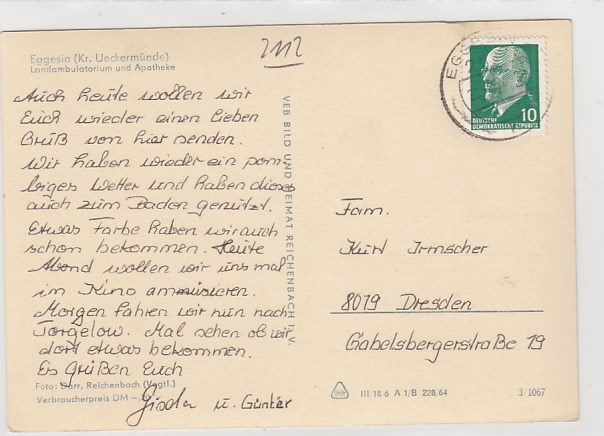 Eggesin (Kr. Ueckermünde)
Landambulatorium und Apotheke
Auch heute wollen wir
Euch wieder einen lieben
Gruß von hier senden.
Wir haben wieder ein pom-
biges Wetter und haben dieses
auch zum Baden genutzt.
Etwas Farbe haben wir auch
schon bekommen. Heute
Abend wollen wir uns mal
im Kino ammüsieren.
Morgen fahren wir nun nach
Torgelow. Mal sehen ob wir
dort etwas bekommen.
Es grüßen Euch
Gisela u. Günter
Foto: Darr, Reichenbach (Vogtl.)
Verbraucherpreis DM
VEB BILD UND HEIMAT REICHENBACH I. V.
10
DEUTSCHE
DEMOKRATISCHE REPUBLIK
Fam.
Kurt Irmscher
8019 Dresden
Gabelsbergerstraße 19
III/18/6 A 1/B 228/64
3/1067